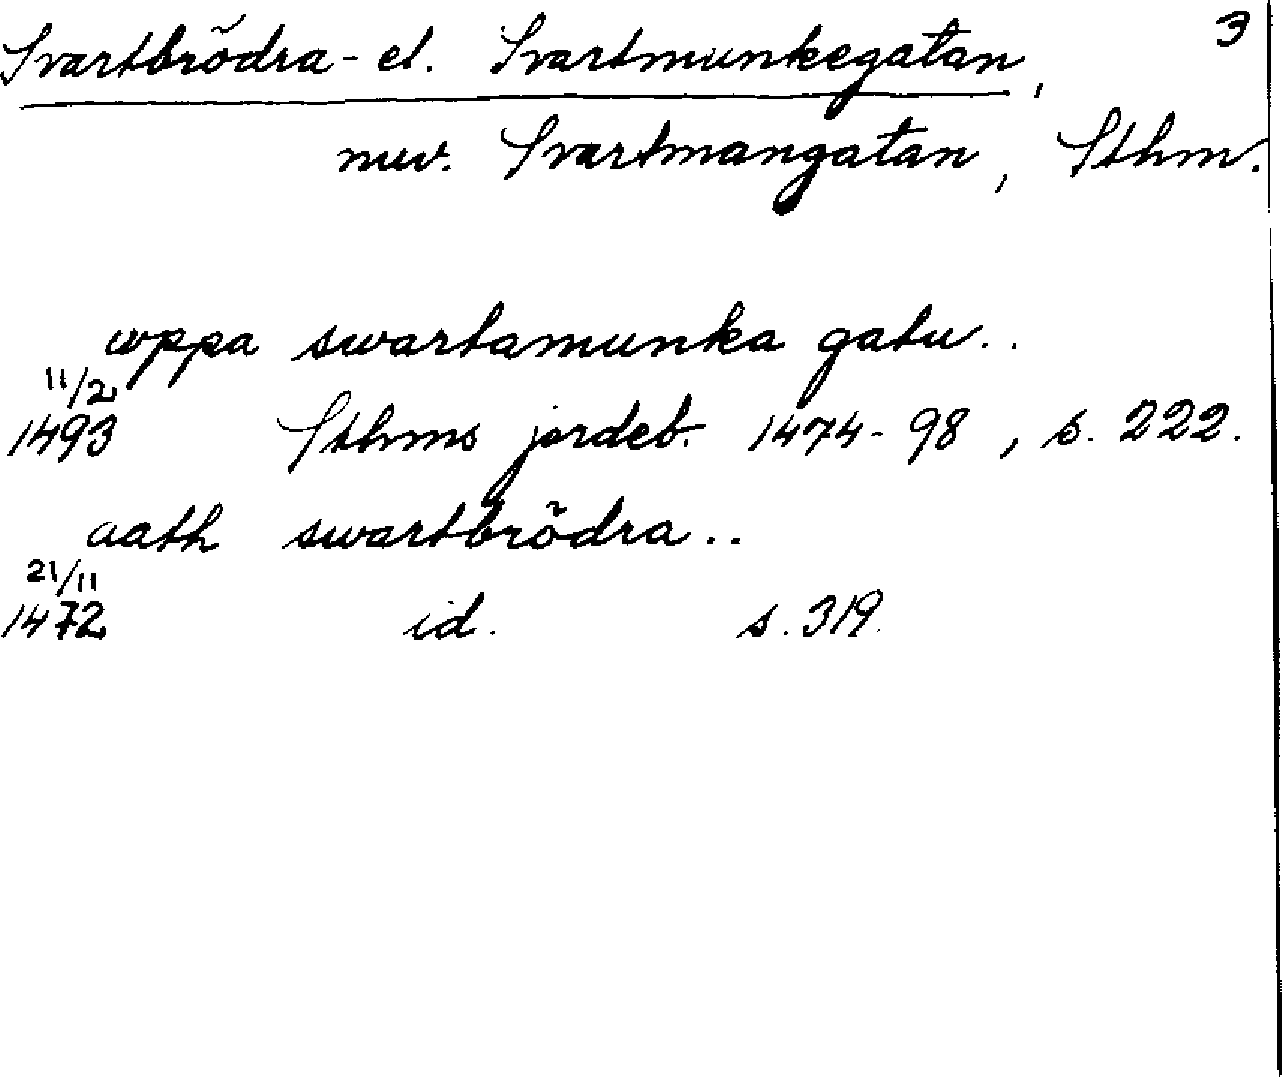 Svartbrödra- el. Svartmunkegatan, 3
nuv. Svartmangatan, Sthm.
wppa swartamunka gatu..
11/2
1493 Sthms jordeb. 1474-98, s. 222.
aath swartbrödra..
21/11
1472 id. s. 319.